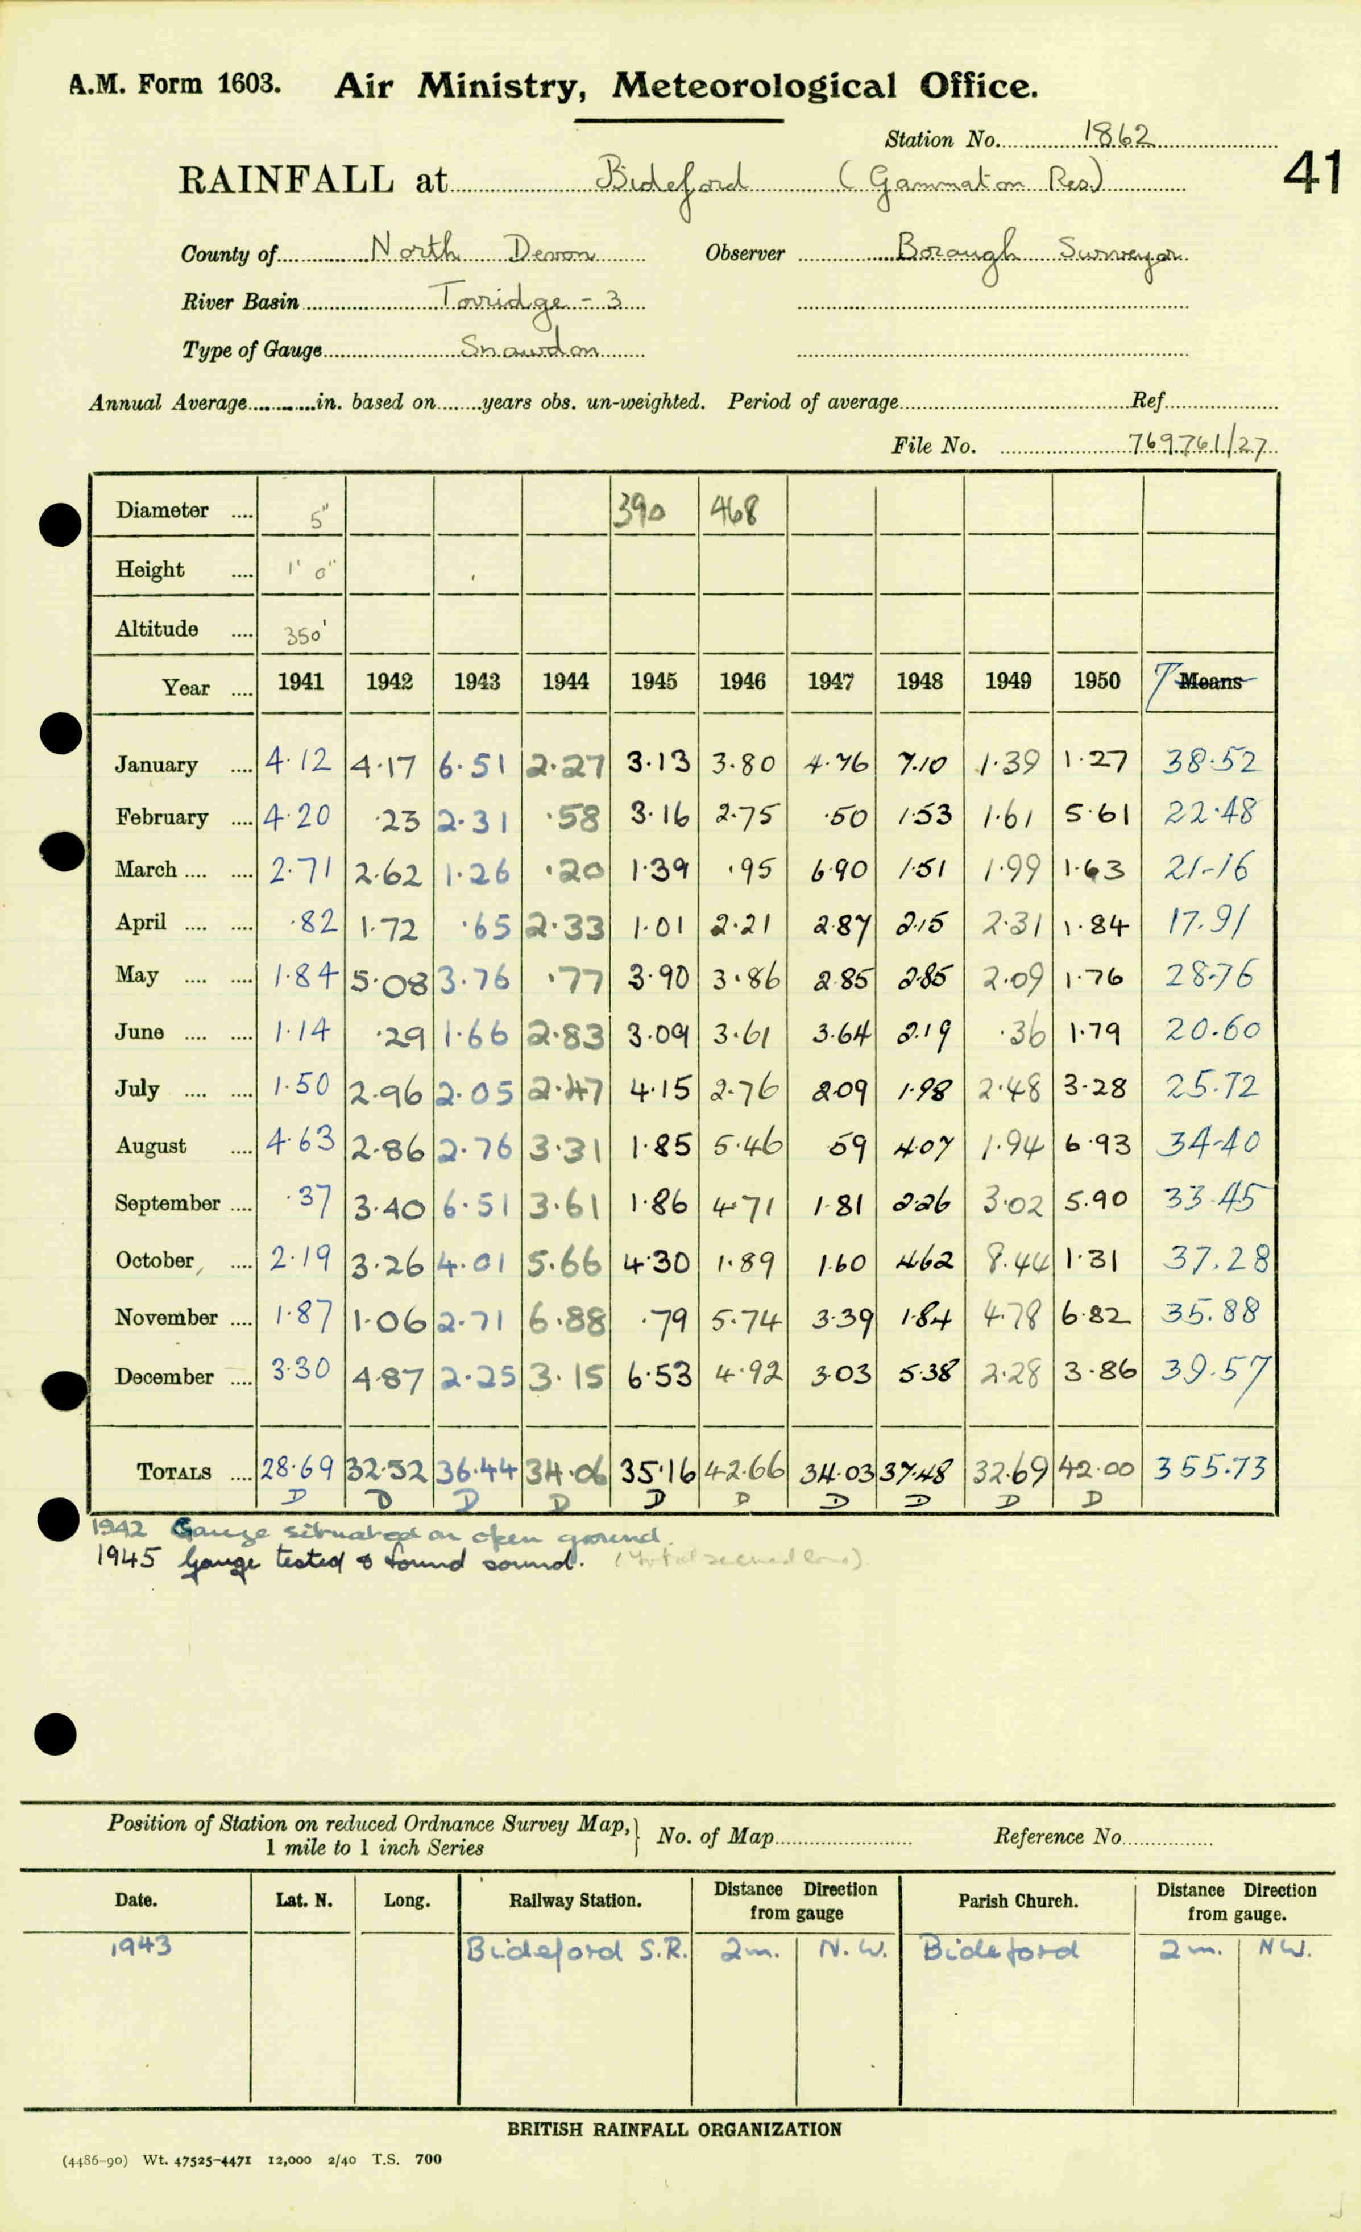 A.M. Form 1603. Air Ministry, Meteorological Office.
Station No. 1862
41
RAINFALL at Bideford (Gammaton Res.)
County of North Devon Observer Borough Surveyor
River Basin Torridge - 3
Type of Gauge Snowdon
Annual Average in. based on years obs. un-weighted. Period of average Ref.
File No. 769761/27
Diameter 5" 390 468
Height 1' 0"
Altitude 350'
Year 1941 1942 1943 1944 1945 1946 1947 1948 1949 1950 T Means
January 4.12 4.17 6.51 2.27 3.13 3.80 4.76 7.10 1.39 1.27 38.52
February 4.20 .23 2.31 .58 3.16 2.75 .50 1.53 1.61 5.61 22.48
March 2.71 2.62 1.26 .20 1.39 .95 6.90 1.51 1.99 1.63 21.16
April .82 1.72 .65 2.33 1.01 2.21 2.87 2.15 2.31 1.84 17.91
May 1.84 5.08 3.76 .77 3.90 3.86 2.85 2.85 2.09 1.76 28.76
June 1.14 .29 1.66 2.83 3.09 3.61 3.64 2.19 .36 1.79 20.60
July 1.50 2.96 2.05 2.47 4.15 2.76 2.09 1.98 2.48 3.28 25.72
August 4.63 2.86 2.76 3.31 1.85 5.46 .59 4.07 1.94 6.93 34.40
September .37 3.40 6.51 3.61 1.86 4.71 1.81 2.26 3.02 5.90 33.45
October 2.19 3.26 4.01 5.66 4.30 1.89 1.60 4.62 8.44 1.31 37.28
November 1.87 1.06 2.71 6.88 .79 5.74 3.39 1.84 4.78 6.82 35.88
December 3.30 4.87 2.25 3.15 6.53 4.92 3.03 5.38 2.28 3.86 39.57
TOTALS 28.69 32.52 36.44 34.06 35.16 42.66 34.03 37.48 32.69 42.00 355.73
D D D D D D D D D D
1942 Gauge situated on open ground.
1945 Gauge tested & found sound. (Total seemed low)
Position of Station on reduced Ordnance Survey Map,
1 mile to 1 inch Series
No. of Map Reference No.
Date. Lat. N. Long. Railway Station. Distance Direction from gauge Parish Church. Distance Direction from gauge.
1943 Bideford S.R. 2m. N.W. Bideford 2m. NW.
BRITISH RAINFALL ORGANIZATION
(4486-90) Wt. 47525-4471 12,000 2/40 T.S. 700